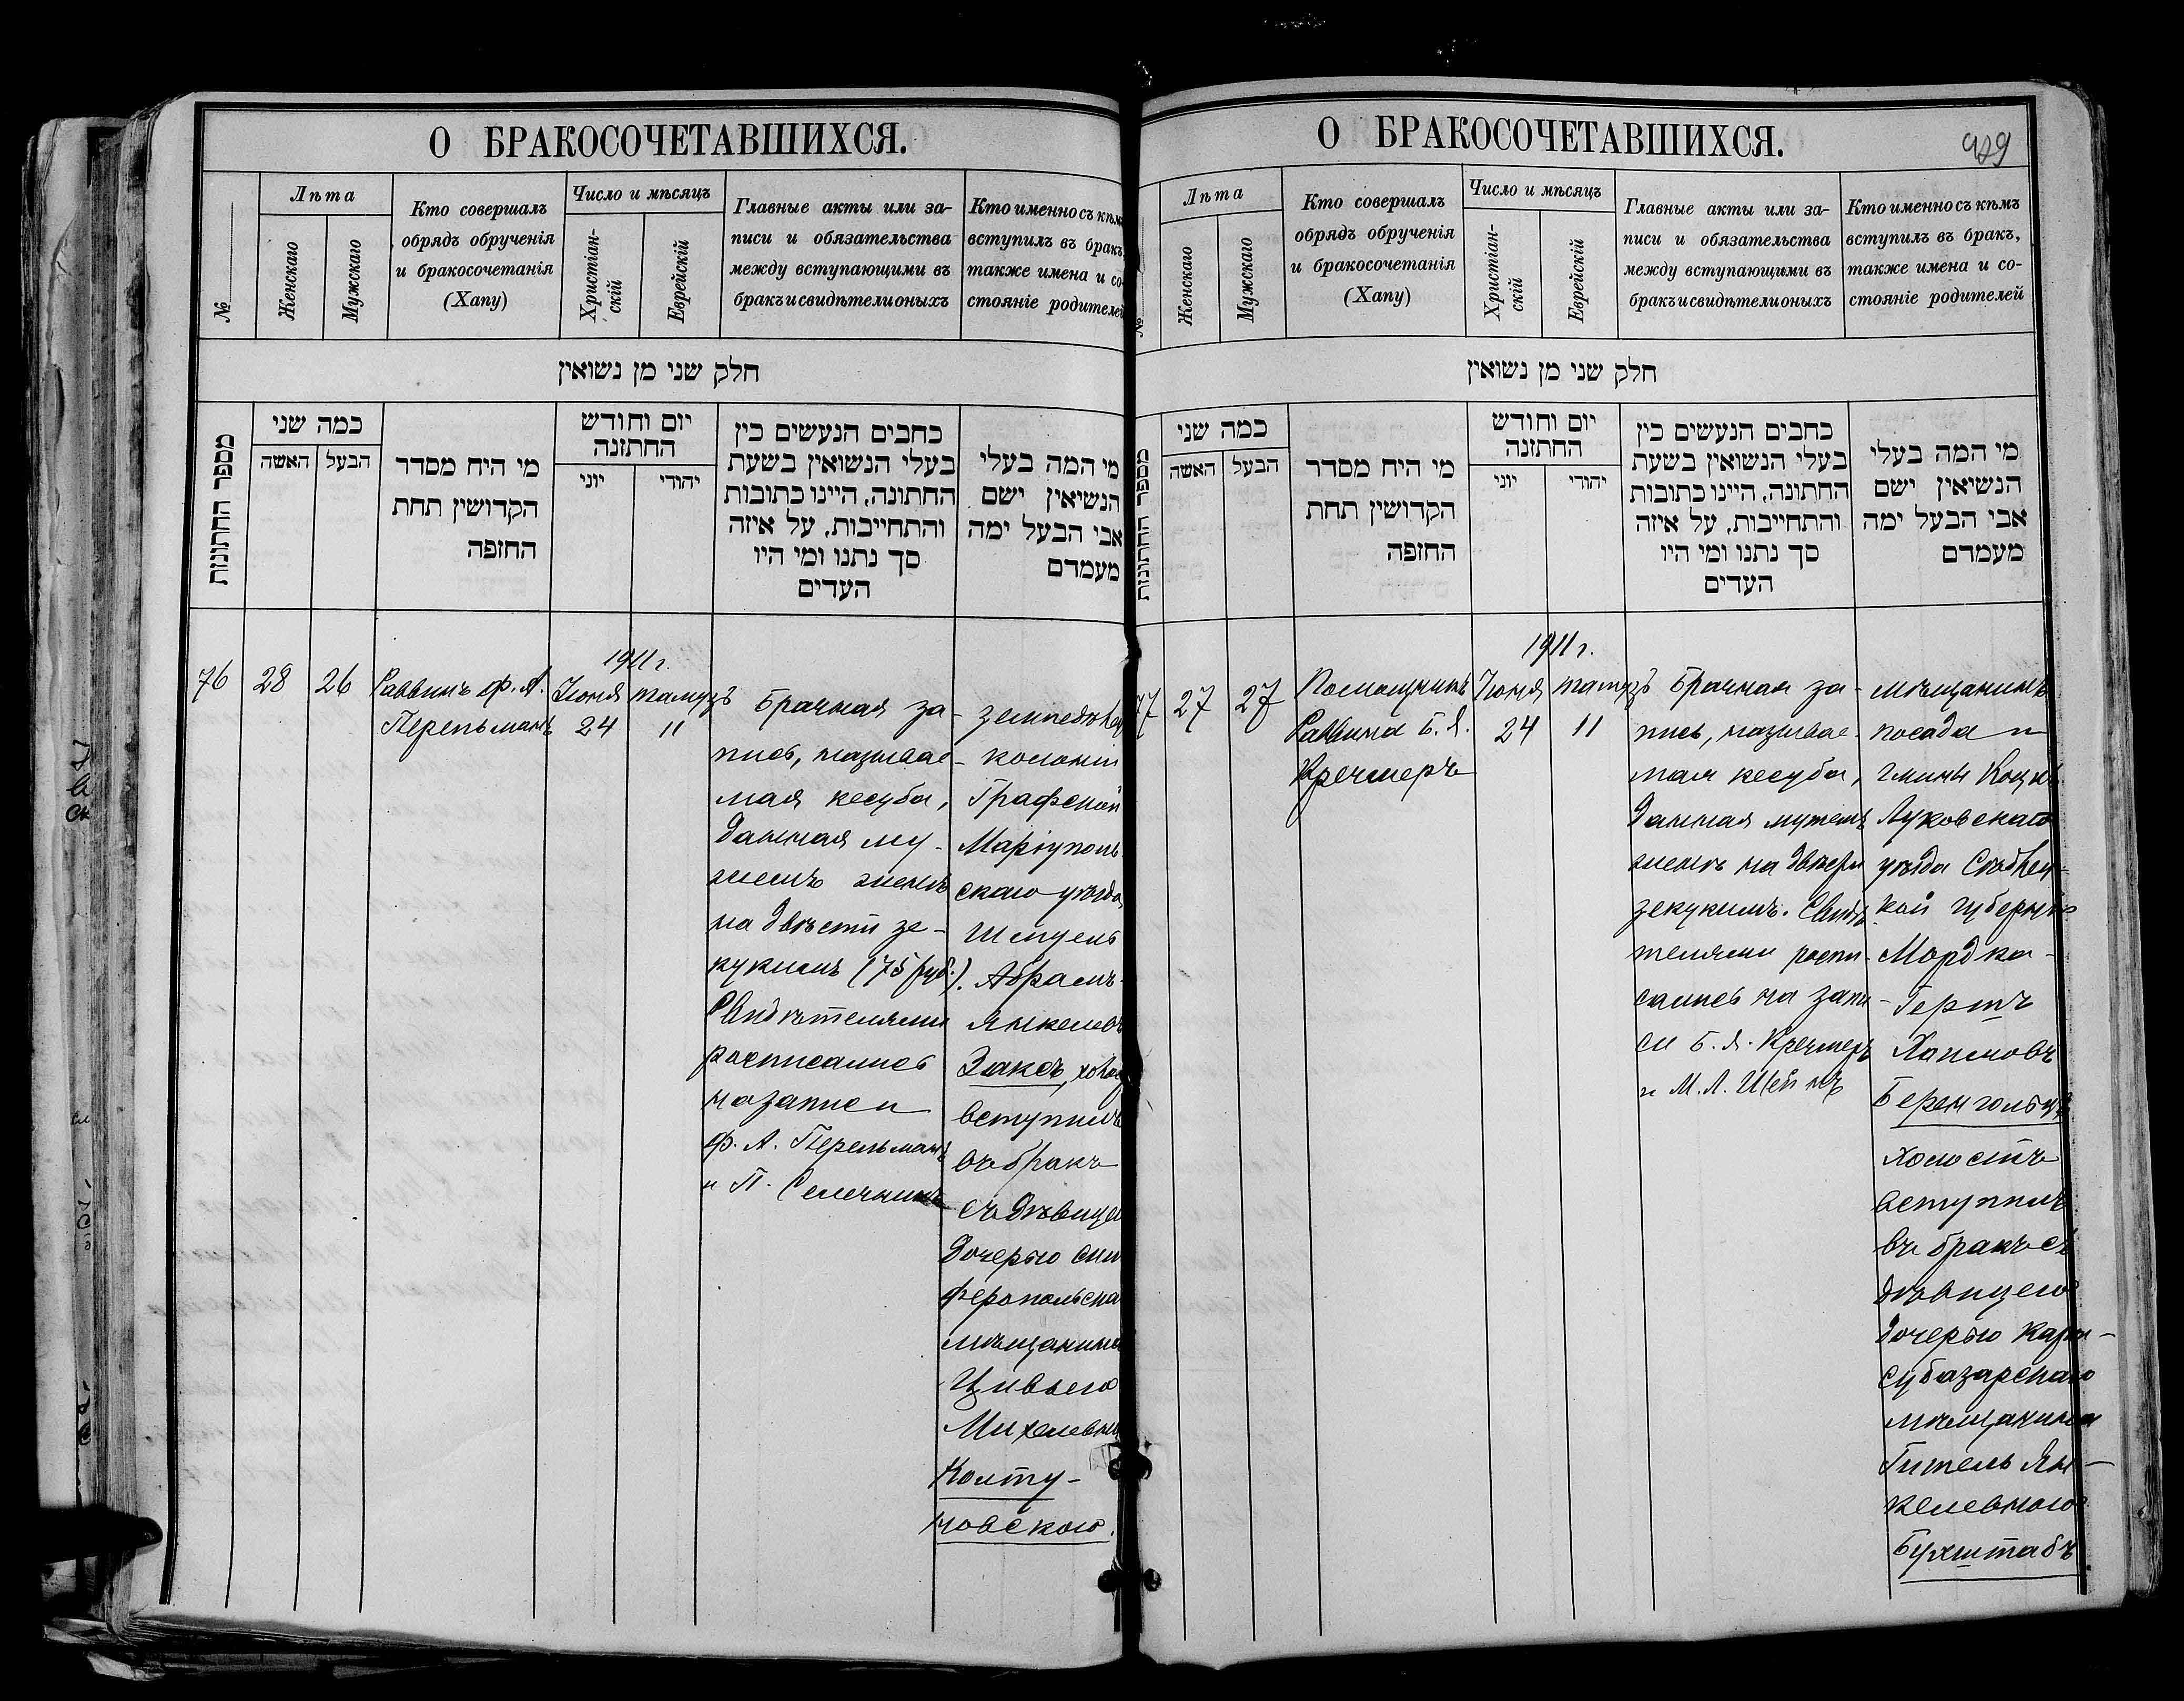 О БРАКОСОЧЕТАВШИХСЯ.
№
Лѣта
Женскаго
Мужскаго
Кто совершалъ
обрядъ обрученія
и бракосочетанія
(Хапу)
Число и мѣсяцъ
Христіан-
скій
Еврейскій
Главные акты или за-
писи и обязательства
между вступающими въ
бракъ и свидѣтели оныхъ
Кто именно съ кѣм
вступилъ въ бракъ
также имена и со-
стояніе родителей
חלק שני מן נשואין
מספר החתונות
כמה שני
האשה
הבעל
מי היח מסדר
הקדושין תחת
החזפה
יום וחודש
החתזנה
יוני
יהודי
כחבים הנעשים כין
בעלי הנשואין בשעת
החתונה, היינו כתובות
והתחייבות, על איזה
סך נתנו ומי היו
העדים
מי המה בעלי
הנשיאין ישם
אבי הבעל ימה
מעמדם
76
28
26
Раввинъ Ф. А.
Перельманъ
1911 г.
Іюня
24
тамузъ
11
Брачная за-
пись, называе-
мая кесуба,
данная му-
жемъ женѣ
на двѣсти зе-
кукимъ (75 руб.).
Свидѣтелями
росписались
на записи
Ф. А. Перельманъ
и П.
колоніи
Графской
Маріуполь
скаго уѣзда
Шмуель
Абрамъ-
Янкелевъ
Заксъ, холос
вступилъ
въ бракъ
съ дѣвицей
дочерью сим
феропольска
мѣщанина
Цивьею
Михелевн
Колту-
новскою.
О БРАКОСОЧЕТАВШИХСЯ.
429
№
Лѣта
Женскаго
Мужскаго
Кто совершалъ
обрядъ обрученія
и бракосочетанія
(Хапу)
Число и мѣсяцъ
Христіан-
скій
Еврейскій
Главные акты или за-
писи и обязательства
между вступающими въ
бракъ и свидѣтели оныхъ
Кто именно съ кѣмъ
вступилъ въ бракъ,
также имена и со-
стояніе родителей
חלק שני מן נשואין
מספר החתונות
כמה שני
האשה
הבעל
מי היח מסדר
הקדושין תחת
החזפה
יום וחודש
החתזנה
יוני
יהודי
כחבים הנעשים כין
בעלי הנשואין בשעת
החתונה, היינו כתובות
והתחייבות, על איזה
סך נתנו ומי היו
העדים
מי המה בעלי
הנשיאין ישם
אבי הבעל ימה
מעמדם
77
27
27
Помощникъ
Раввина Б. Я.
Кречмеръ
1911 г.
Іюня
24
тамузъ
11
Брачная за-
пись, называе-
мая кесуба,
данная мужемъ
женѣ на двѣсти
зекукимъ. Свидѣ-
телями роспи-
сались на запи-
си Б. Я. Кречмеръ
и М. Л. Шейнъ
мѣщанинъ
посада и
гмины Коцкъ
Луковскаго
уѣзда Сѣдлец-
кой губерніи
Мордка-
Гершъ
Хаимовъ
Беренгольцъ
холостъ
вступилъ
въ бракъ съ
дѣвицею
дочерью Кара-
субазарскаго
мѣщанина
Гитель Ян-
келевною
Бухштабъ